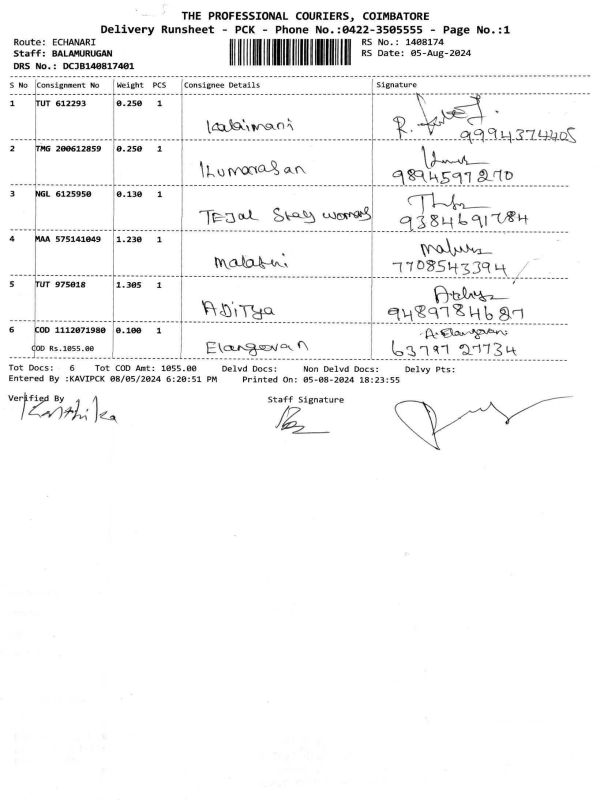 THE PROFESSIONAL COURIERS, COIMBATORE
Delivery Runsheet - PCK - Phone No.:0422-3505555 - Page No.:1
Route: ECHANARI RS No.: 1408174
Staff: BALAMURUGAN RS Date: 05-Aug-2024
DRS No.: DCJB140817401
S No Consignment No Weight PCS Consignee Details Signature
1 TUT 612293 0.250 1
Kalaimani R. 9994374405
2 TMG 200612859 0.250 1
Kumarasan 9894597270
3 NGL 6125950 0.130 1
TEJal Stay womans 9384691784
4 MAA 575141049 1.230 1
malathi 7708543394
5 TUT 975018 1.305 1
ADiTya 9489784627
6 COD 1112071980 0.100 1 A. Elangovan
COD Rs.1055.00 Elangovan 63797 27734
Tot Docs: 6 Tot COD Amt: 1055.00 Delvd Docs: Non Delvd Docs: Delvy Pts:
Entered By :KAVIPCK 08/05/2024 6:20:51 PM Printed On: 05-08-2024 18:23:55
Verified By Staff Signature
Karthika